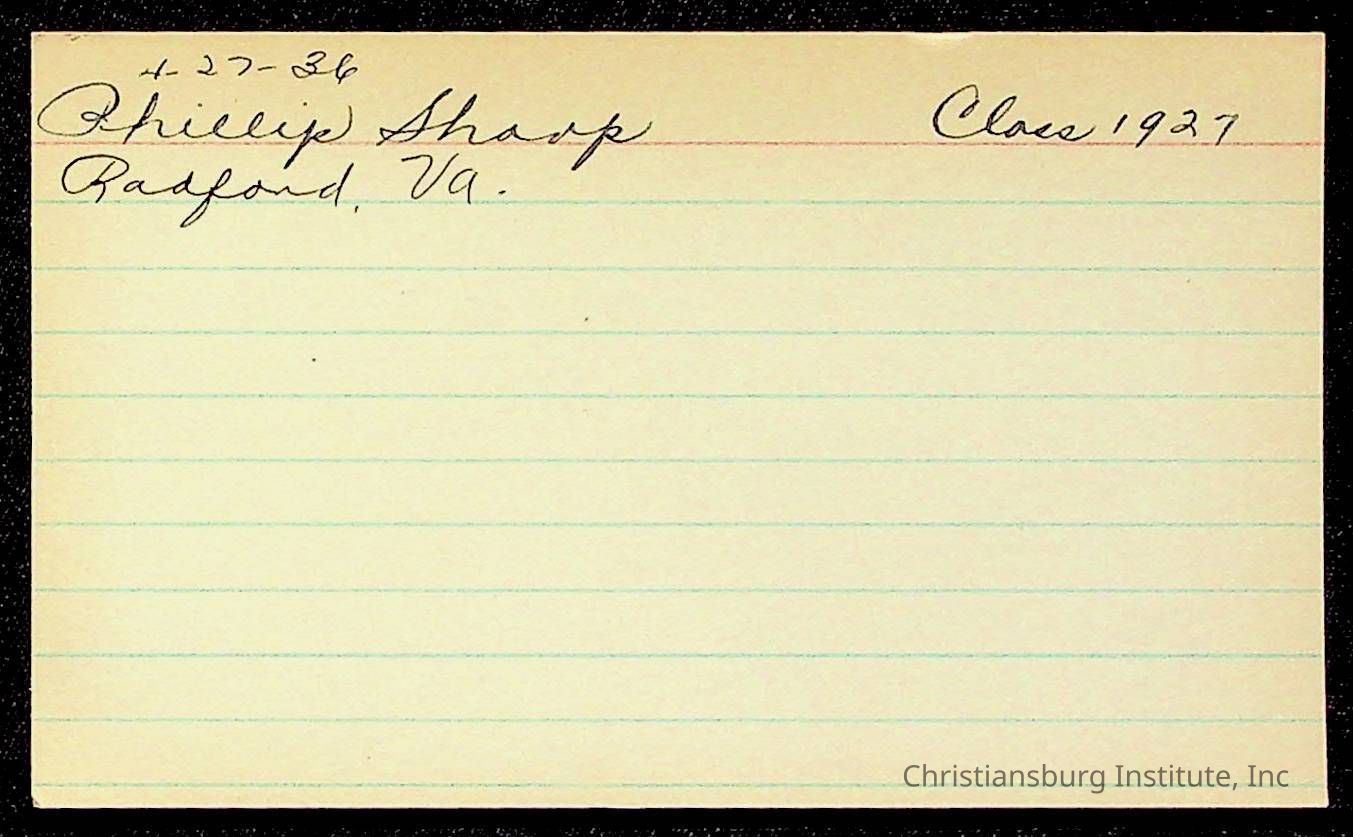 4-27-36
Phillip Sharp Class 1927
Radford, Va.
Christiansburg Institute, Inc